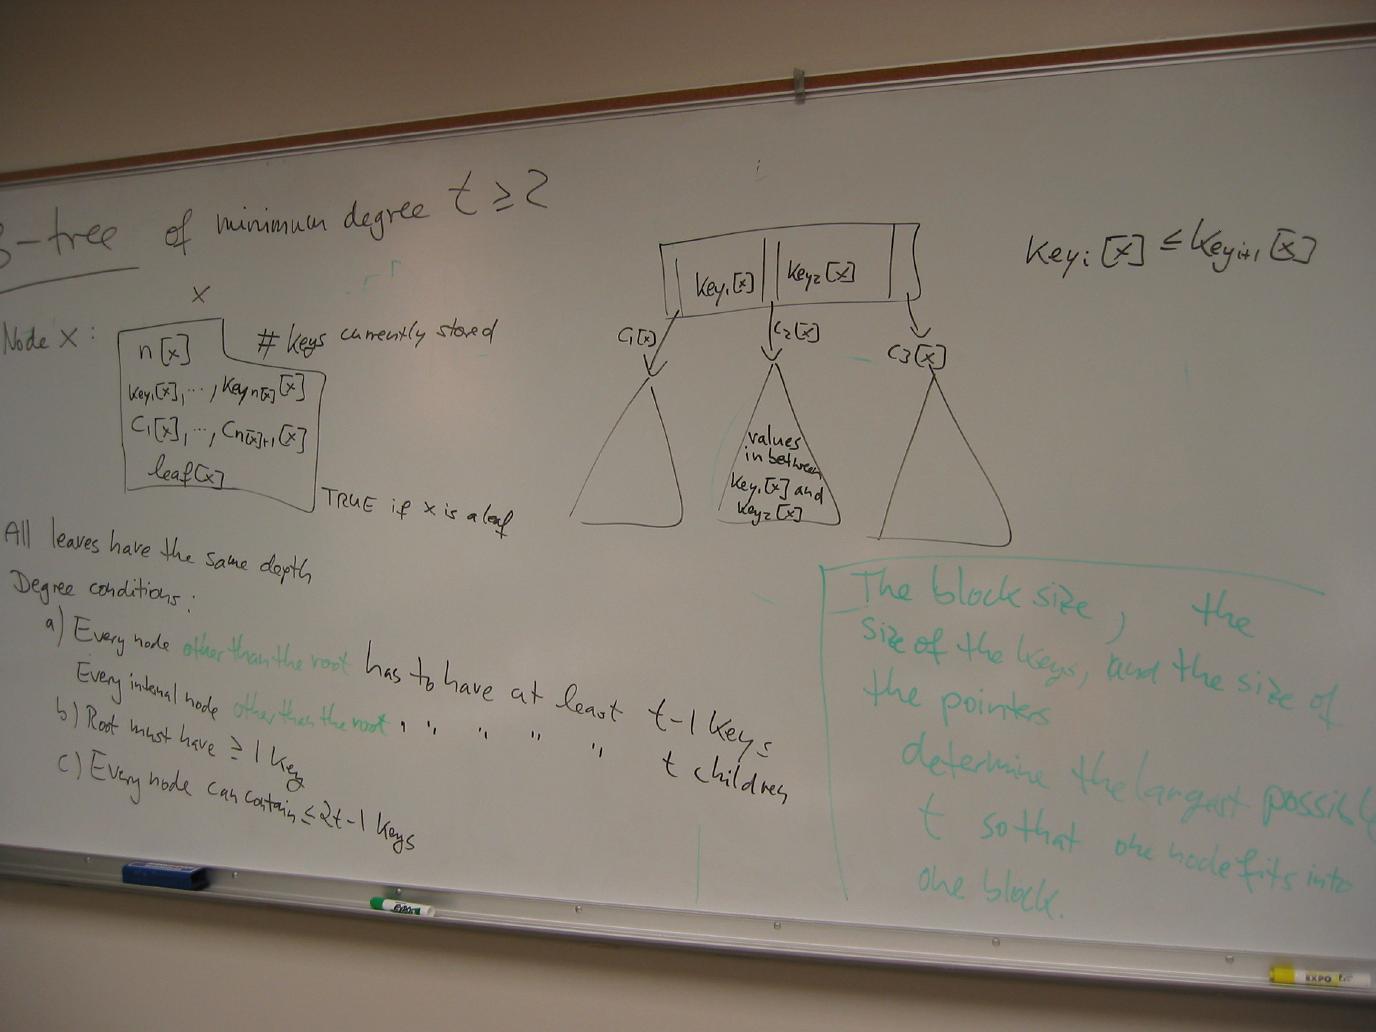 B-tree of minimum degree t ≥ 2
Node X:
X
n[x]
# keys currently stored
key₁[x], ..., key n[x] [x]
C₁[x], ..., C n[x]+1 [x]
leaf[x]
TRUE if x is a leaf
All leaves have the same depth
Degree conditions:
a) Every node other than the root has to have at least t-1 keys
Every internal node other than the root " " " " " t children
b) Root must have ≥ 1 key
c) Every node can contain ≤ 2t-1 keys
key₁[x] key₂[x]
C₁[x] C₂[x] C3[x]
values
in between
key₁[x] and
key₂[x]
keyᵢ[x] ≤ keyᵢ₊₁[x]
The block size, the
size of the keys, and the size of
the pointers
determine the largest possible
t so that one node fits into
one block.
EXPO
EXPO